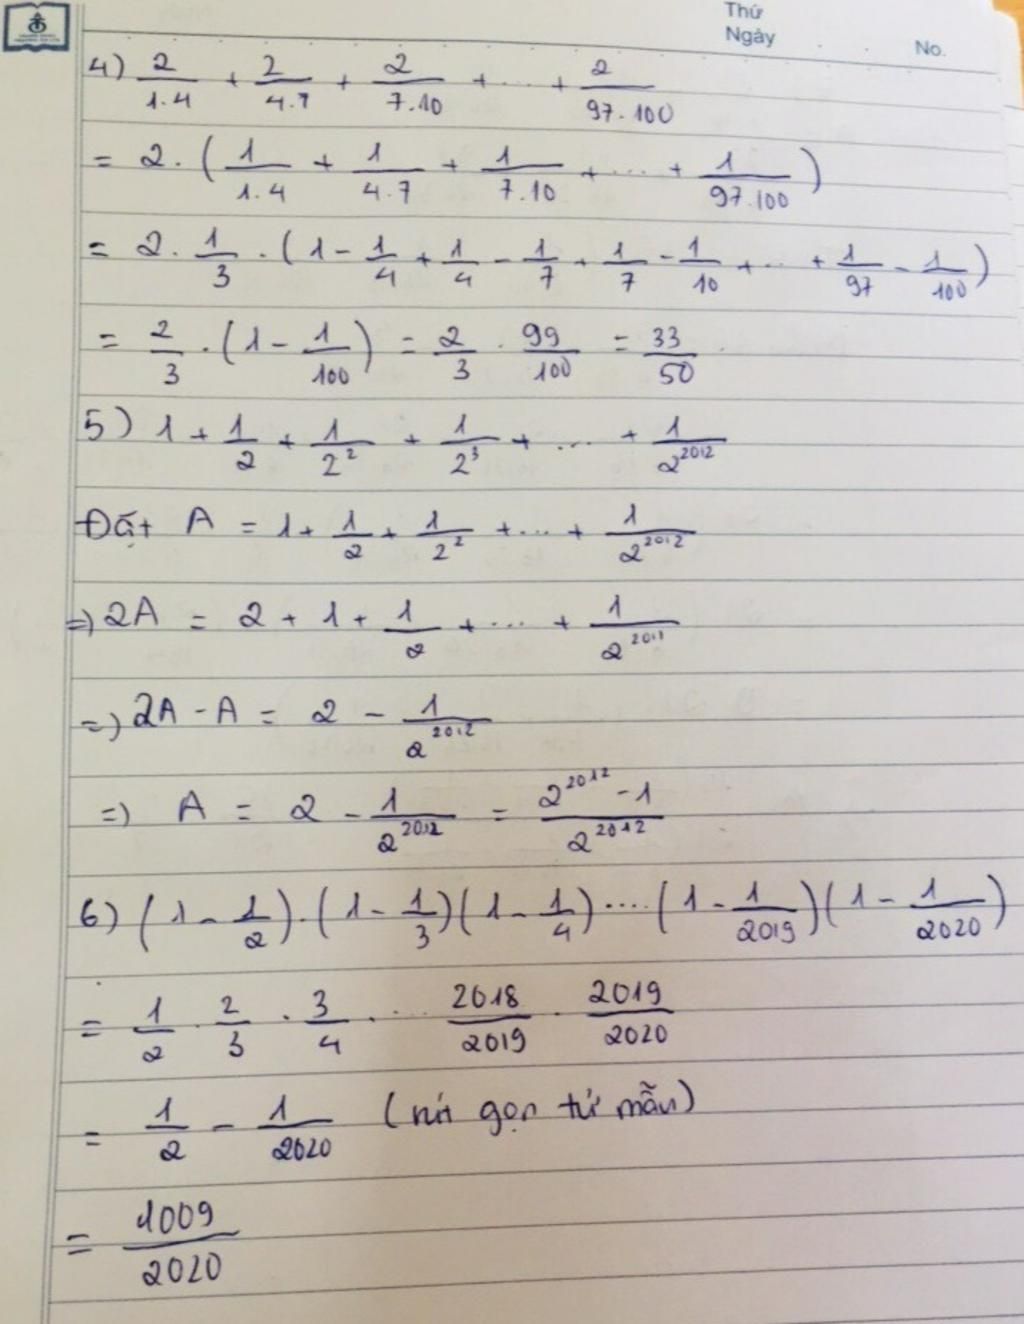 Thứ
Ngày No.
4) 2/1.4 + 2/4.7 + 2/7.10 + ... + 2/97.100
= 2 . (1/1.4 + 1/4.7 + 1/7.10 + ... + 1/97.100)
= 2 . 1/3 . (1 - 1/4 + 1/4 - 1/7 + 1/7 - 1/10 + ... + 1/97 - 1/100)
= 2/3 . (1 - 1/100) = 2/3 . 99/100 = 33/50
5) 1 + 1/2 + 1/2^2 + 1/2^3 + ... + 1/2^2012
Đặt A = 1 + 1/2 + 1/2^2 + ... + 1/2^2012
=> 2A = 2 + 1 + 1/2 + ... + 1/2^2011
=> 2A - A = 2 - 1/2^2012
=> A = 2 - 1/2^2012 = (2^2012 - 1)/2^2012
6) (1 - 1/2).(1 - 1/3)(1 - 1/4)....(1 - 1/2019)(1 - 1/2020)
= 1/2 . 2/3 . 3/4 . ... 2018/2019 . 2019/2020
= 1/2 - 1/2020 (rút gọn tử mẫu)
= 1009/2020